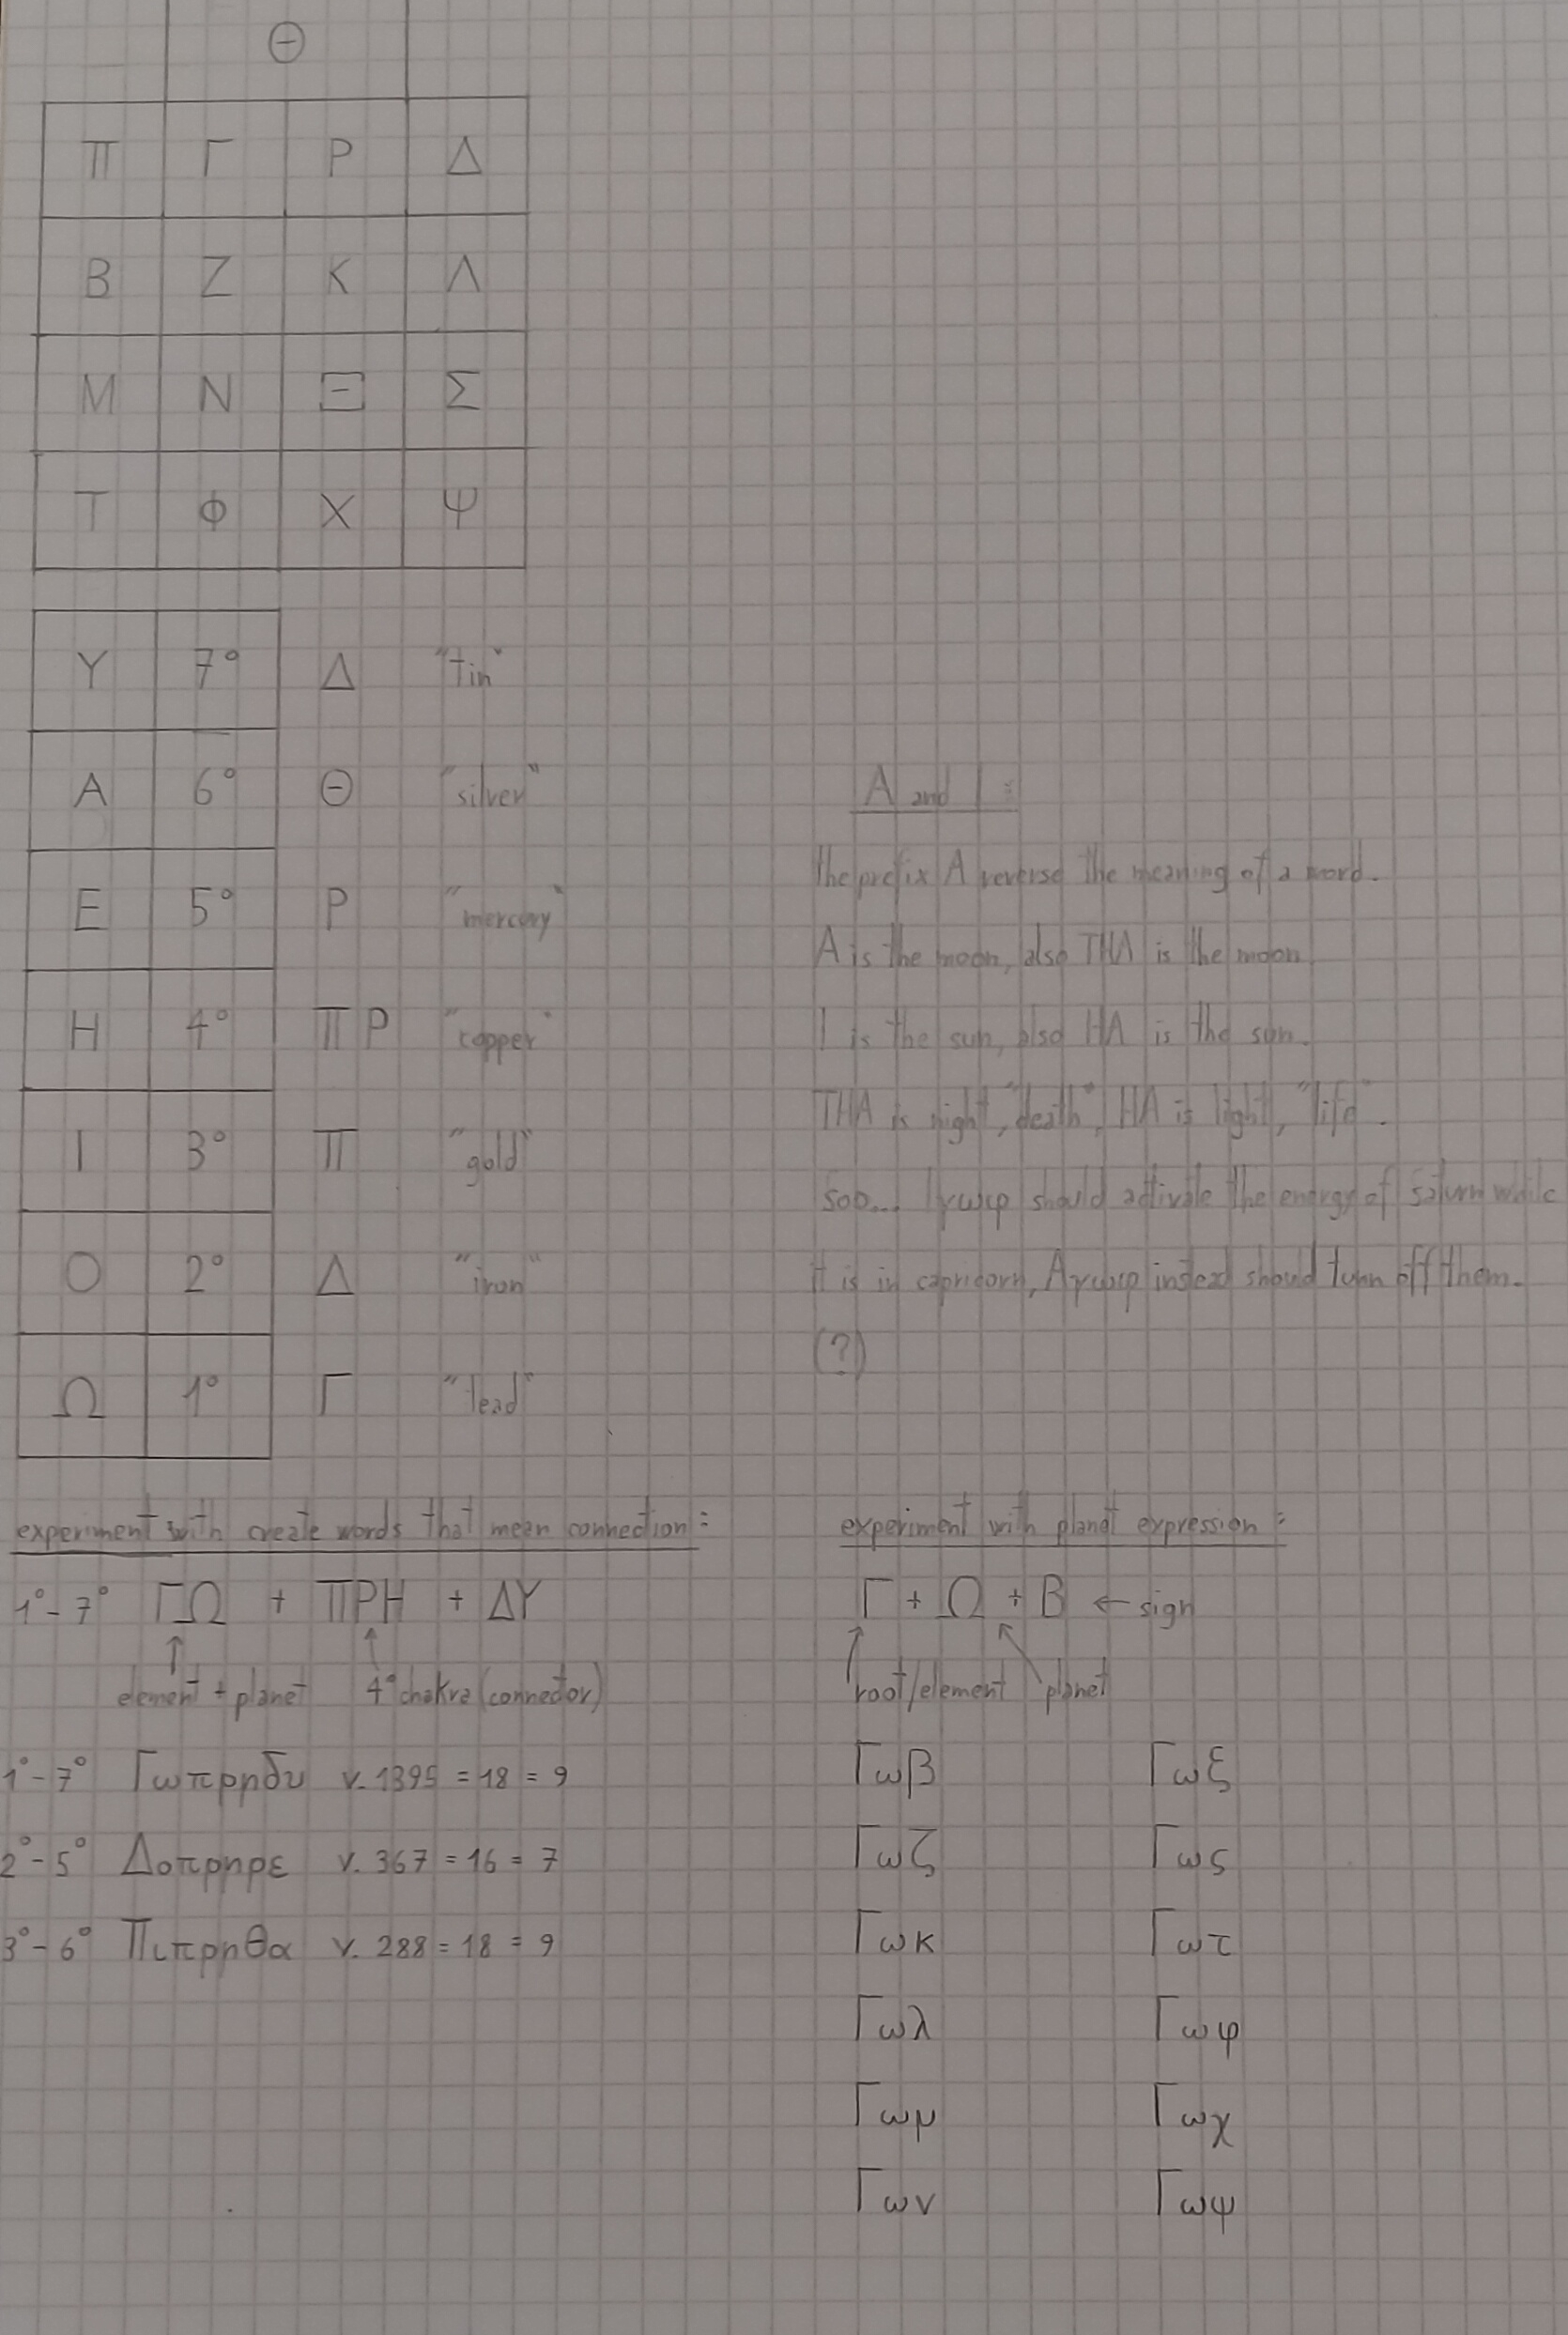 Θ
Π Γ Ρ Δ
Β Ζ Κ Λ
Μ Ν Ξ Σ
Τ Φ Χ Ψ
Υ 7° Δ "tin"
Α 6° Θ "silver"
Ε 5° Ρ "mercury"
Η 4° ΠΡ "copper"
Ι 3° Π "gold"
Ο 2° Δ "iron"
Ω 1° Γ "lead"
A and I :
the prefix A reverse the meaning of a word.
A is the moon, also THA is the moon
I is the sun, also HA is the sun.
THA is night, "death", HA is light, "life".
soo... Iγωφ should activate the energy of saturn while
it is in capricorn, Aγωφ instead should turn off them.
(?)
experiment with create words that mean connection :
1°-7° ΓΩ + ΠΡΗ + ΔΥ
element + planet 4° chakra (connector)
1°-7° Γωπρηδυ v. 1395 = 18 = 9
2°-5° Δοπρηρε v. 367 = 16 = 7
3°-6° Πιπρηθα v. 288 = 18 = 9
experiment with planet expression :
Γ + Ω + Β ← sign
root/element planet
Γωβ Γωξ
Γωζ Γως
Γωκ Γωτ
Γωλ Γωφ
Γωμ Γωχ
Γων Γωψ